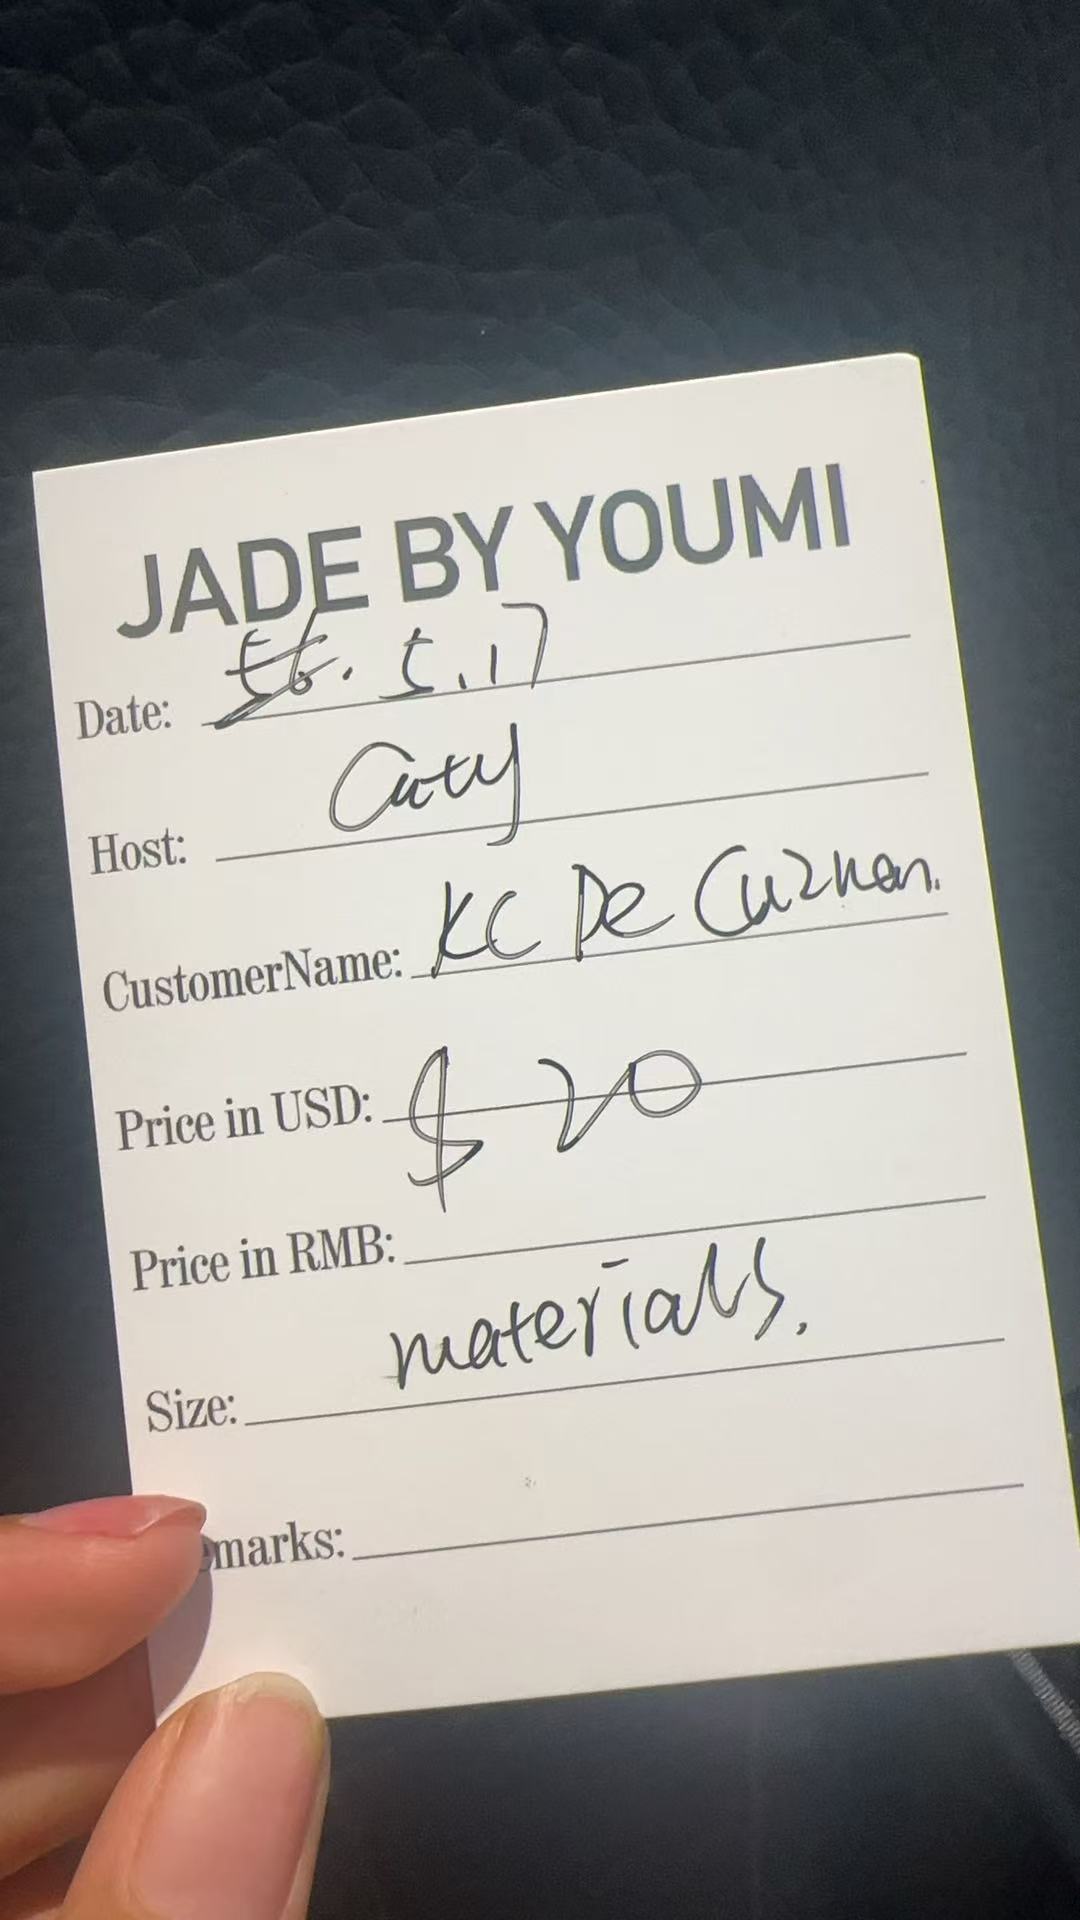 JADE BY YOUMI
Date: 5.17
Host: Caty
CustomerName: KC De Guzman.
Price in USD: $ 20
Price in RMB:
materials.
Size:
emarks: